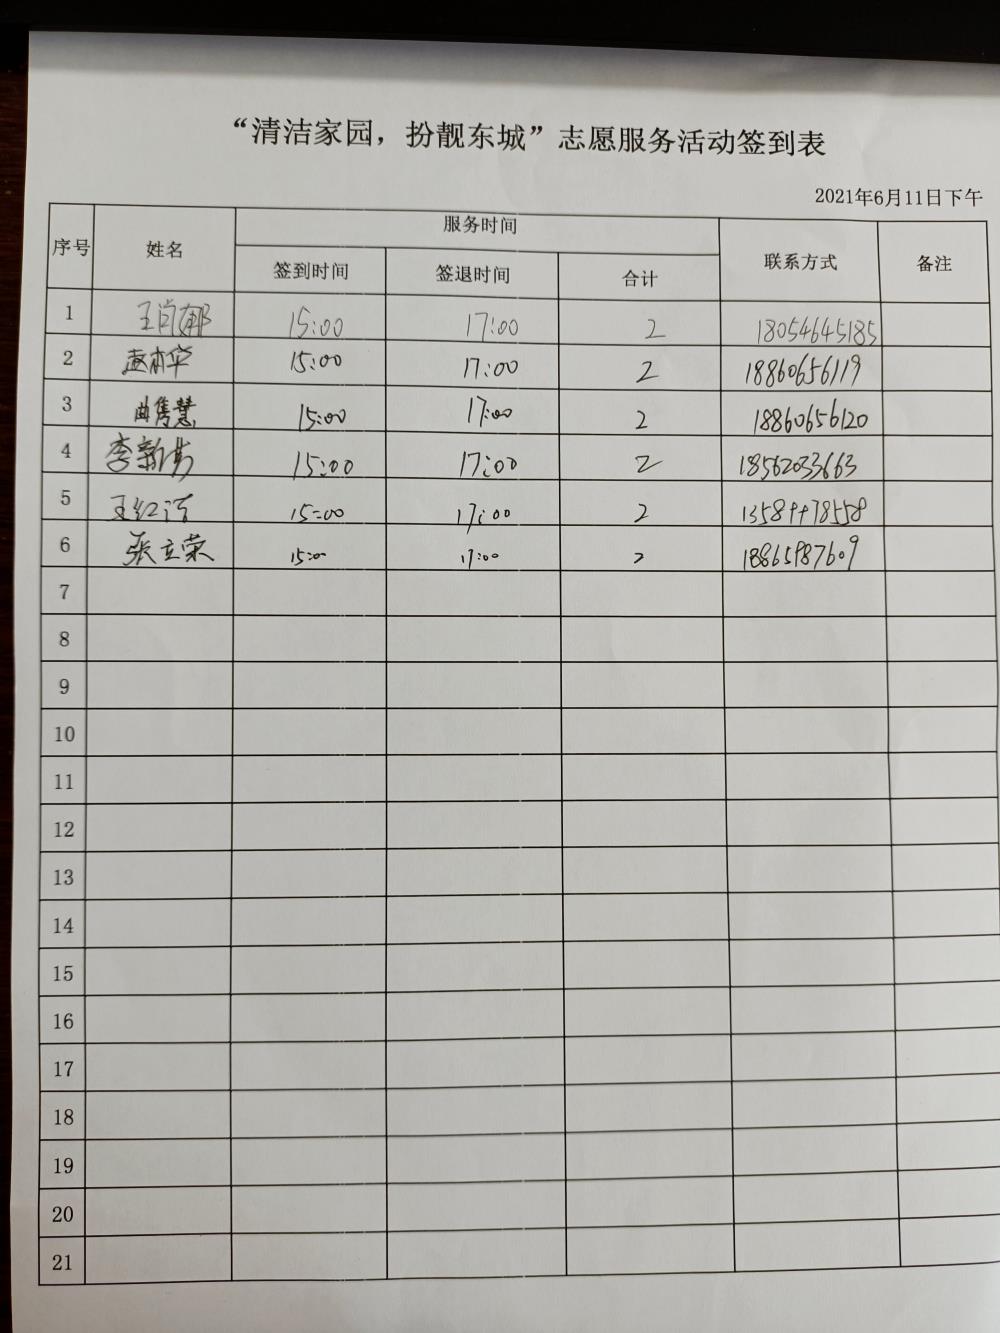 “清洁家园，扮靓东城”志愿服务活动签到表
2021年6月11日下午
序号 姓名 服务时间 联系方式 备注
签到时间 签退时间 合计
1 王肖娜 15:00 17:00 2 18054645185
2 赵林华 15:00 17:00 2 18860656119
3 曲隽慧 15:00 17:00 2 18860656120
4 李新 15:00 17:00 2 18562033663
5 王红 15:00 17:00 2
6 张立荣 15:00 17:00 2 18865987609
7
8
9
10
11
12
13
14
15
16
17
18
19
20
21